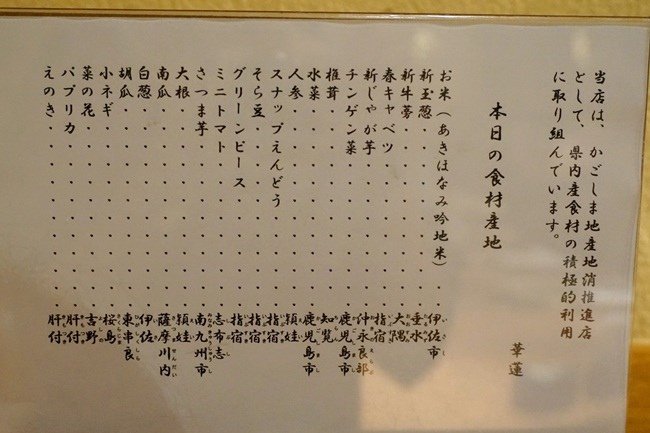 当店は、かごしま地産地消推進店
として、県内産食材の積極的利用
に取り組んでいます。
華蓮
本日の食材産地
お米(あきはなみ吟地米)・伊佐市
新玉葱・・・・・・・・・・垂水
新牛蒡・・・・・・・・・・大隅
春キャベツ・・・・・・・・指宿
新じゃが芋・・・・・・・・沖永良部
チンゲン菜・・・・・・・・鹿児島市
椎茸・・・・・・・・・・・知覧
水菜・・・・・・・・・・・鹿児島市
人参・・・・・・・・・・・頴娃
スナップえんどう・・・・・指宿
そら豆・・・・・・・・・・指宿
グリーンピース・・・・・・指宿
ミニトマト・・・・・・・・志布志
さつま芋・・・・・・・・・南九州市
大根・・・・・・・・・・・頴娃
南瓜・・・・・・・・・・・薩摩川内
白葱・・・・・・・・・・・伊佐
胡瓜・・・・・・・・・・・東串良
小ネギ・・・・・・・・・・桜島
菜の花・・・・・・・・・・吉野
パプリカ・・・・・・・・・肝付
えのき・・・・・・・・・・肝付